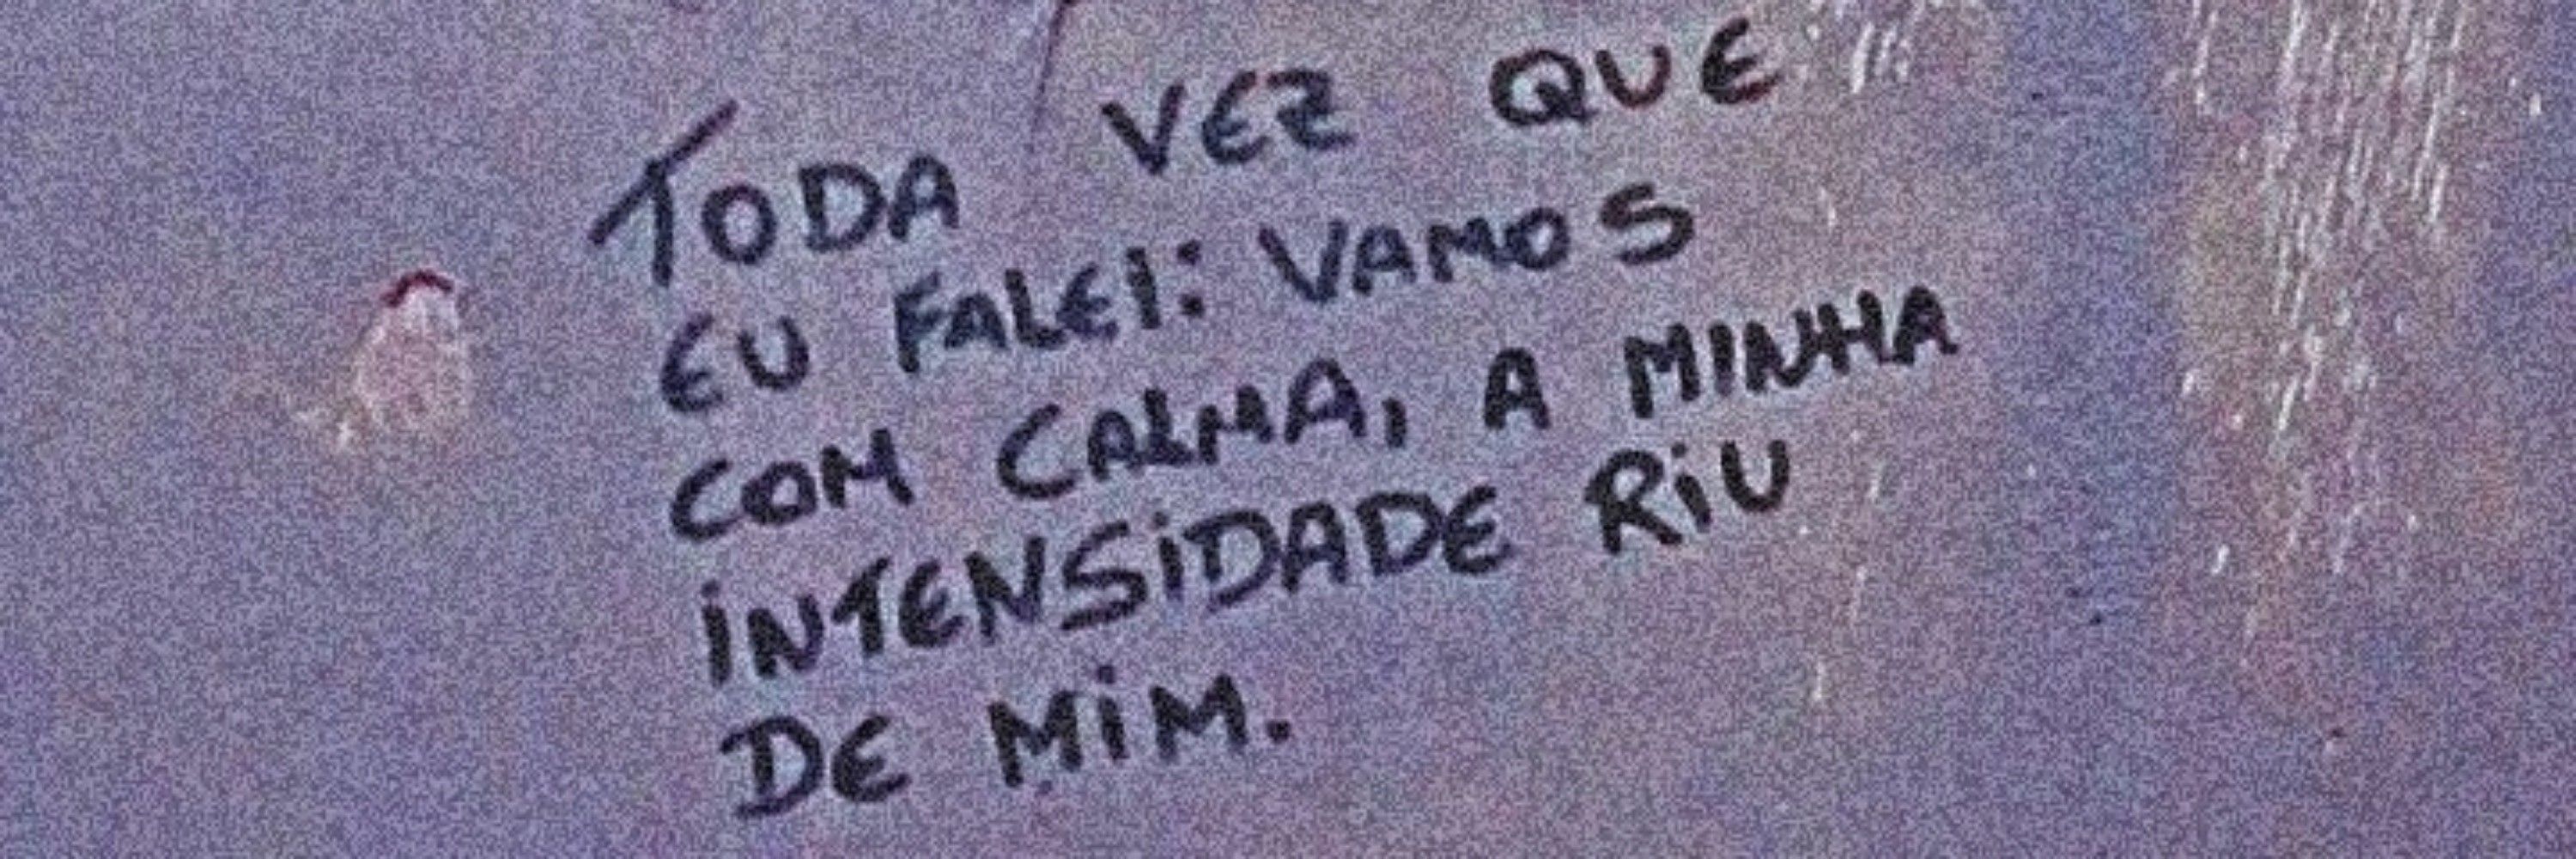 TODA VEZ QUE
EU FALEI: VAMOS
COM CALMA, A MINHA
INTENSIDADE RIU
DE MIM.